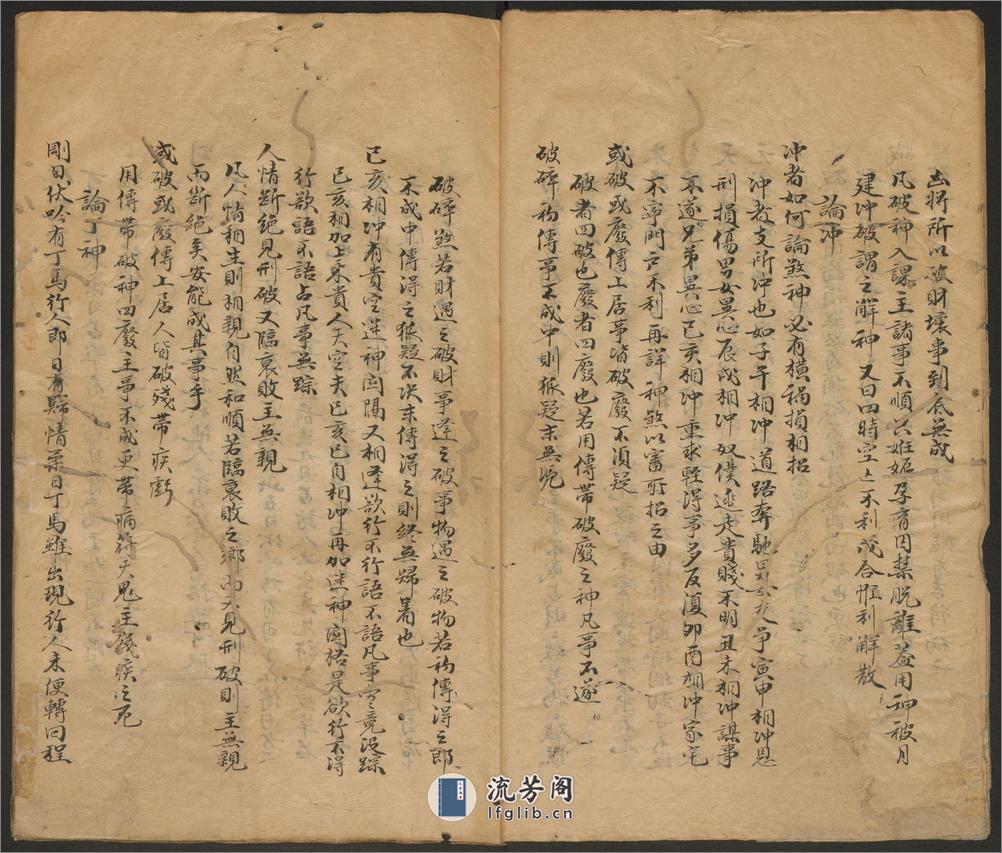 凶將所以破財壞事到底無成
凡破神入課主諸事不順只姙娠孕育囚禁脫離蓋用神被月
建冲破謂之解神又曰四時空亡不利成合惟利解散
論冲
冲者如何論煞神必有橫禍損相招
冲者支所冲也如子午相冲道路奔馳男女争寅申相冲思
刑損傷男女異心辰戌相冲奴僕逃走貴賤不明丑未相冲謀事
不遂兄弟異心巳亥相冲重求輕得事多反復卯酉相冲家宅
不寧門户不利再詳神煞以審所招之由
或破或廢傳上居事皆破廢不須疑
破者四破也廢者四廢也若用傳帶破廢之神凡事不遂
破碎初傳事不成中則狐疑末無
破碎煞若財遇之破財事逢之破事物遇之破物若初傳得之即
不成中傳得之狐疑不决末傳得之則終無歸著也
巳亥相冲有貴空迷神関隔又相逢欲行不行語不語凡事究竟没踪
巳亥相加上乘貴人天空夫巳亥已自相冲再加迷神関格是欲行不得
行欲語不語占凡事無踪
人情断絶見刑破又臨衰敗主無親
凡人情相生則相親自然和順若臨衰敗之鄉而又見刑破則主無親
而断絶矣安能成其事乎
或破或廢傳上居人皆破殘帶疾虧
用傳帶破神四廢主事不成更帶病符天鬼主殘疾之厄
論丁神
剛日伏吟有丁馬行人即日有歸情柔日丁馬雖出現行人未便轉回程
流芳阁
lfglib.cn